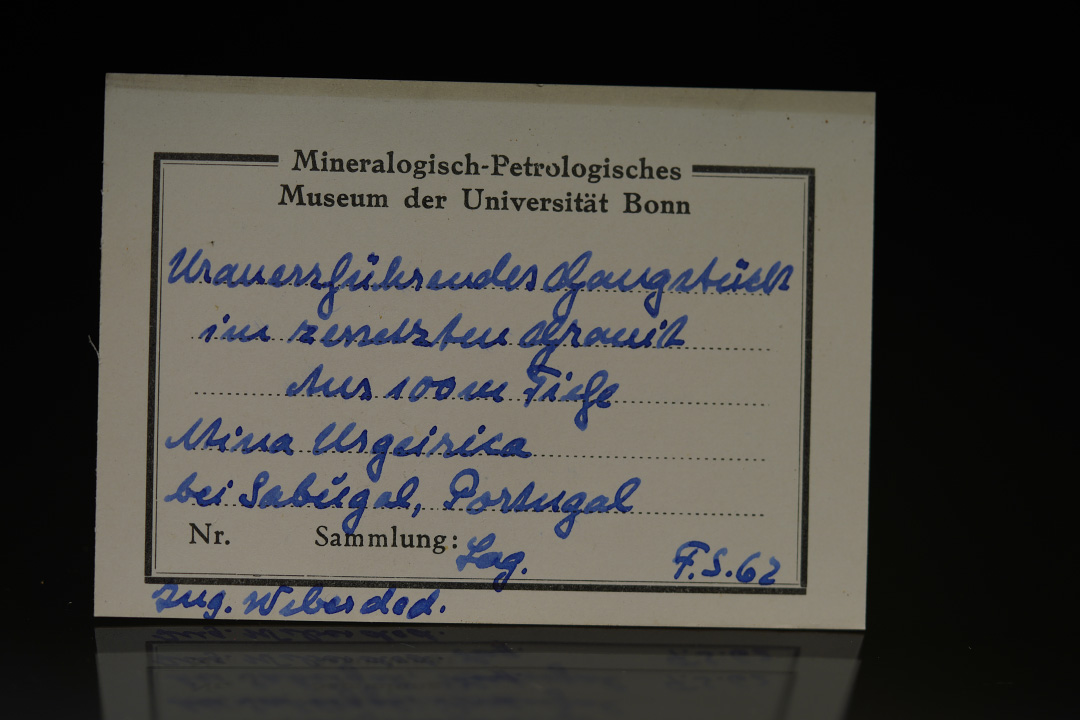 Mineralogisch-Petrologisches
Museum der Universität Bonn
Uranerzführendes Gangstück
im zersetzten Granit
Aus 100 m Tiefe
Mina Urgeirica
bei Sabugal, Portugal
Nr. Sammlung: Lag. F.S.62
Ing. Weber ded.